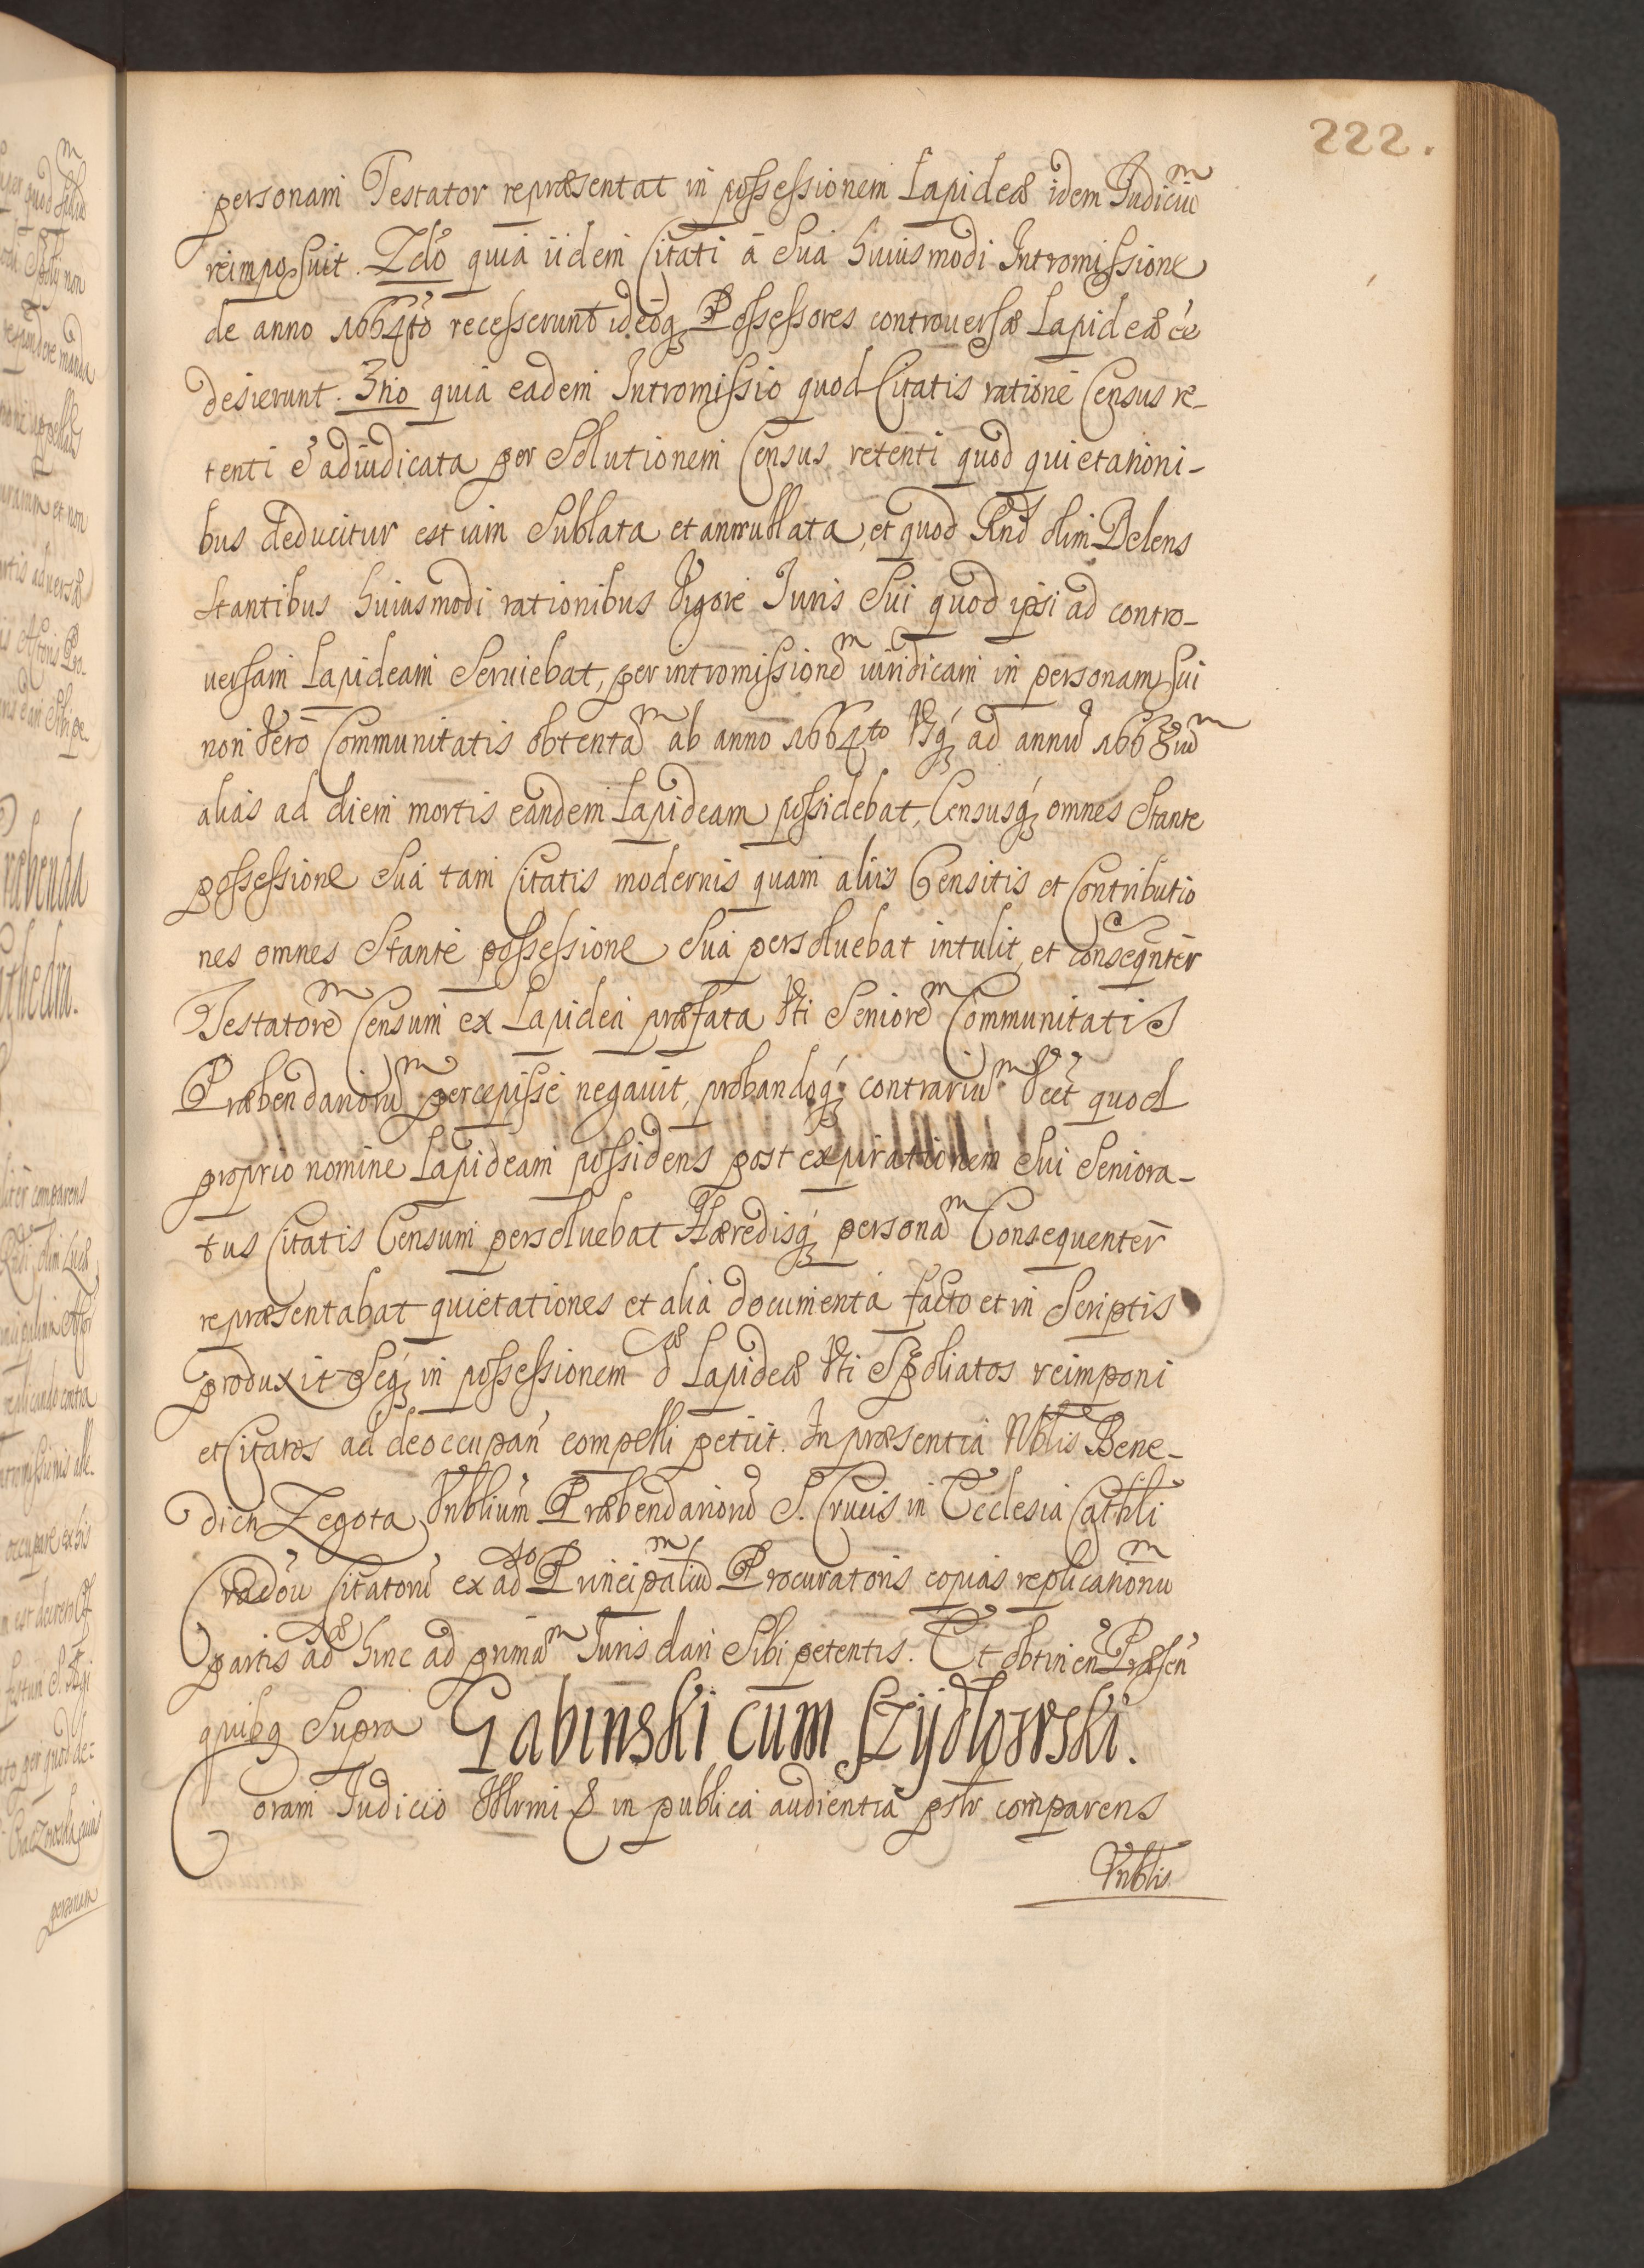 222.
personam Testator repræsentat in possessionem Lapideæ idem Judiciu͂m
reimposuit. 2dò quia iidem Citati à Sua huiusmodi Intromissione
de anno 1664tò recesserunt ideoq3 Possessores controuersæ Lapideæ eē
desierunt. 3tio quia eadem Intromissio quod Citatis ratione Census re-
tenti ē adiudicata per Solutionem Census retenti quod quietationi-
bus deducitur est iam Sublata et annullata, et quod Rnds olim Belens
stantibus huiusmodi rationibus Vigore Juris Sui quod ipsi ad contro-
uersam Lapideam Seruiebat, per intromissionem iuridicam in personam Sui
non Vero Communitatis obtentam ab anno 1664to Vsq3 ad annum 1668uum
alias ad diem mortis eandem Lapideam possidebat, Censusq3 omnes Stante
possessione Sua tam Citatis modernis quam aliis Censitis et Contributio
nes omnes Stante possessione Sua persoluebat intulit, et conseqnter
Testatorem Censum ex Lapidea præfata Vti Seniorem Communitatis
Præbendariorum percepisse negauit, probandoq3 contrarium Vcet quod
proprio nomine Lapideam possidens post expirationem Sui Seniora-
tus Citatis Censum persoluebat Hæredisq3 personam Consequenter
repræsentabat quietationes et alia documenta facto et in Scriptis
produxit Seq3 in possessionem dæ Lapideæ Vti Spoliatos reimponi
et Citatos ad deoccupan̄ compelli petiit. In præsentia Nblis Bene-
dicti Zegota Vnblium Præbendariorū S. Crucis in Ecclesia Cathli
Cracou Citatorū ex adso Principalium Procuratoris copias replicationum
partis adsæ hinc ad primam Juris dari Sibi petentis. Et obtinen Præsen
quibq Supra Gabinski cum Szydłowski.
Coram Judicio Illrmi & in publica audientia pslr comparens
Vnblis